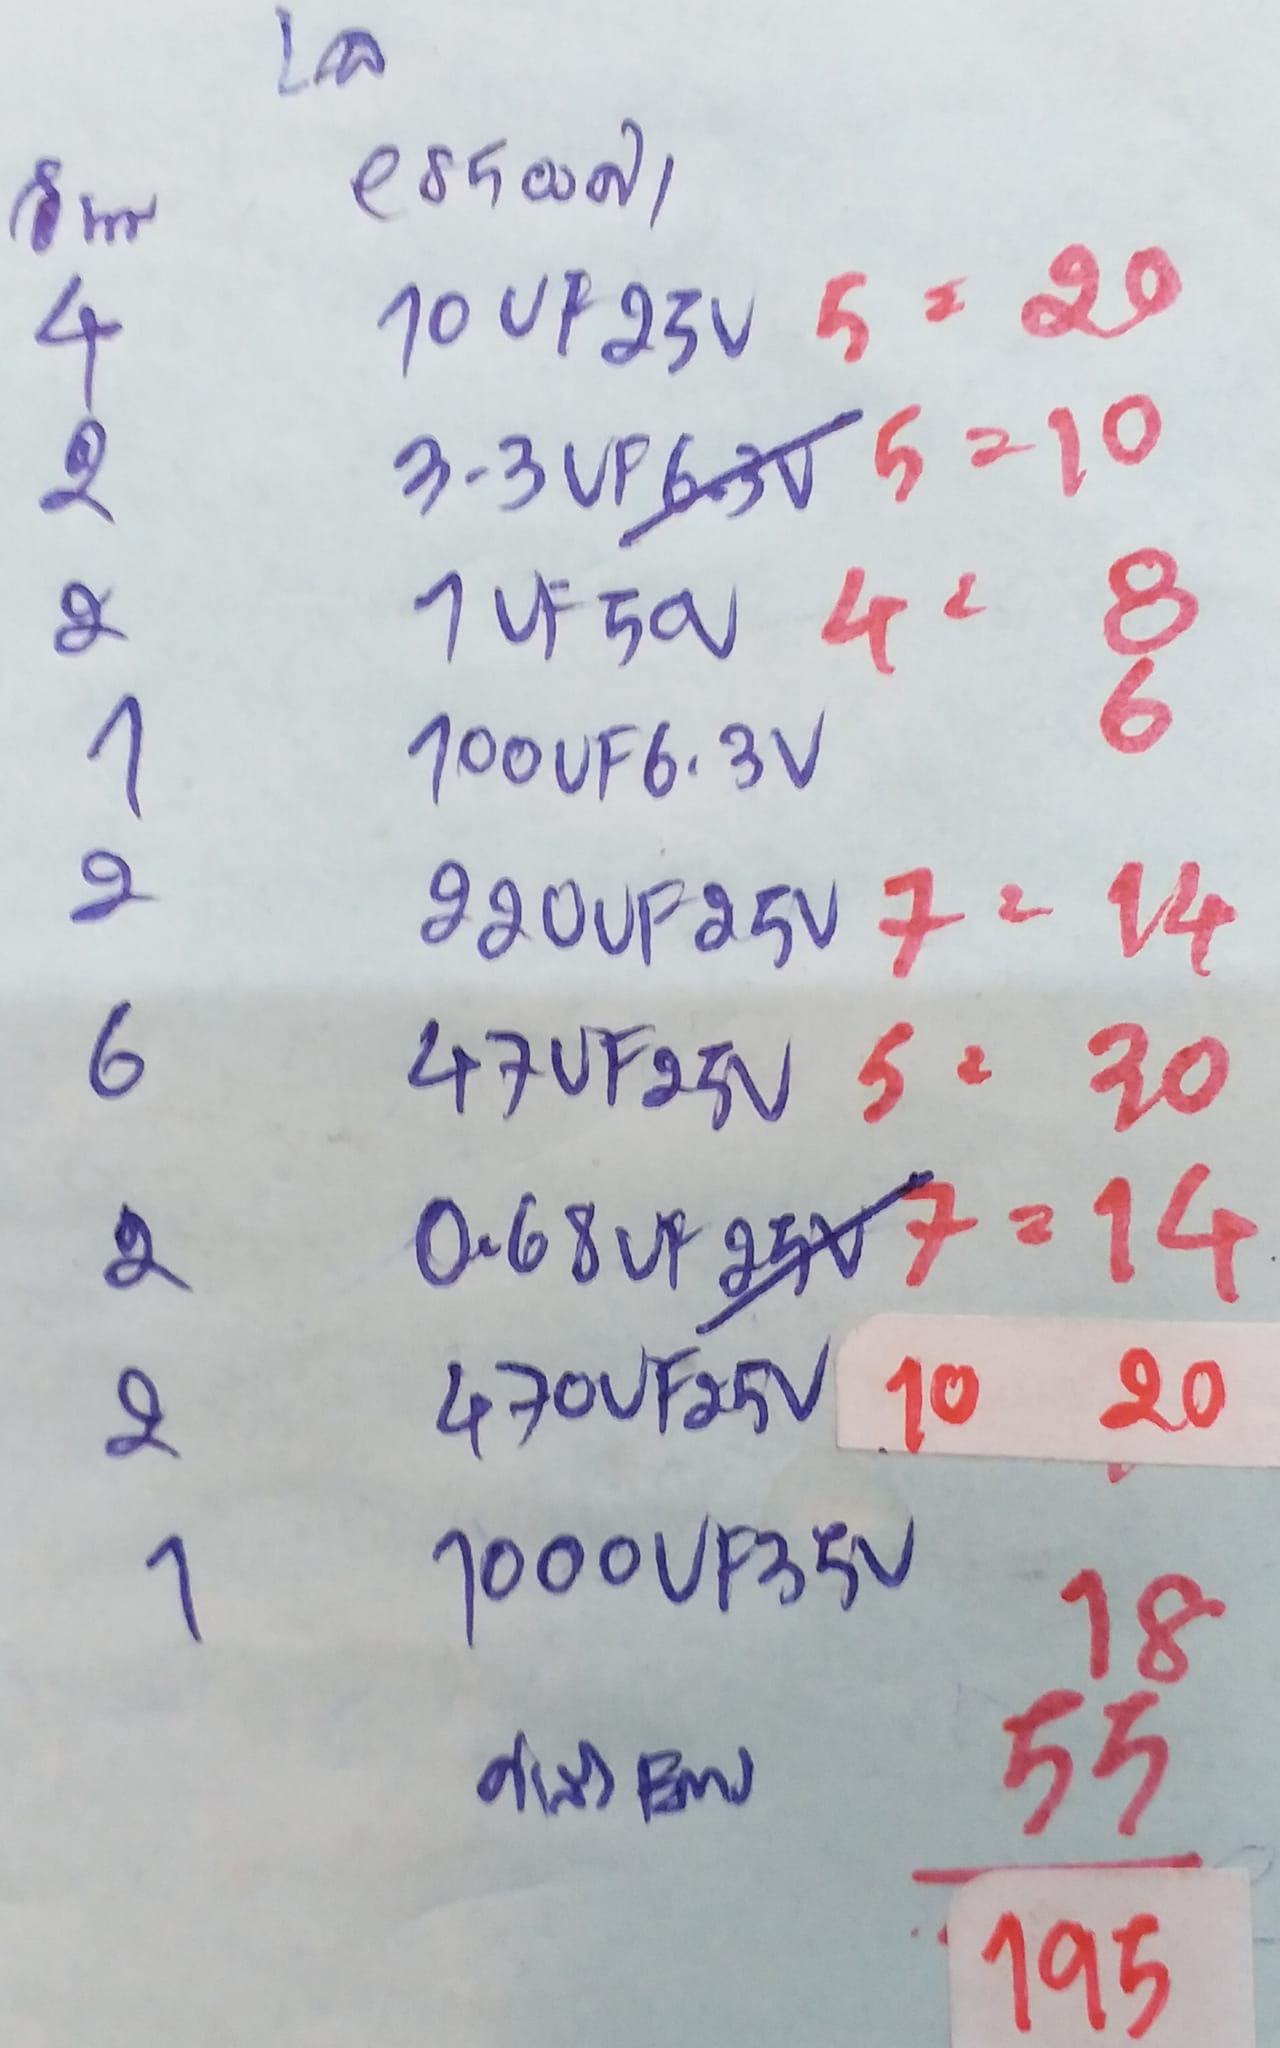 4 10UF25V 5 = 20
2 3.3UF 6.3V 5 = 10
2 1UF50V 4 = 8
1 100UF6.3V 6
2 220UF25V 7 = 14
6 47UF25V 5 = 30
2 0.68UF 25V 7 = 14
2 470UF25V 10 20
1 1000UF35V 18
55
195